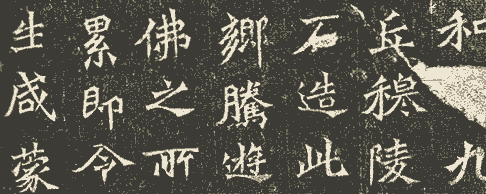 和九
丘穆陵
石造此
鄉騰遊
佛之所
累即令
生咸蒙